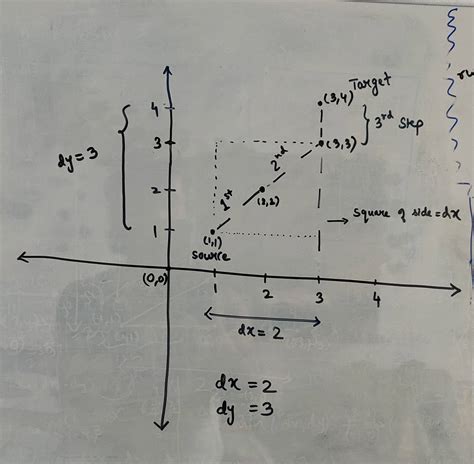 Target
(3,4)
4
3rd step
3
(3,3)
dy = 3
2nd
2
1st
(2,2)
square of side = dx
1
(1,1)
source
(0,0)
2
3
4
dx = 2
dx = 2
dy = 3